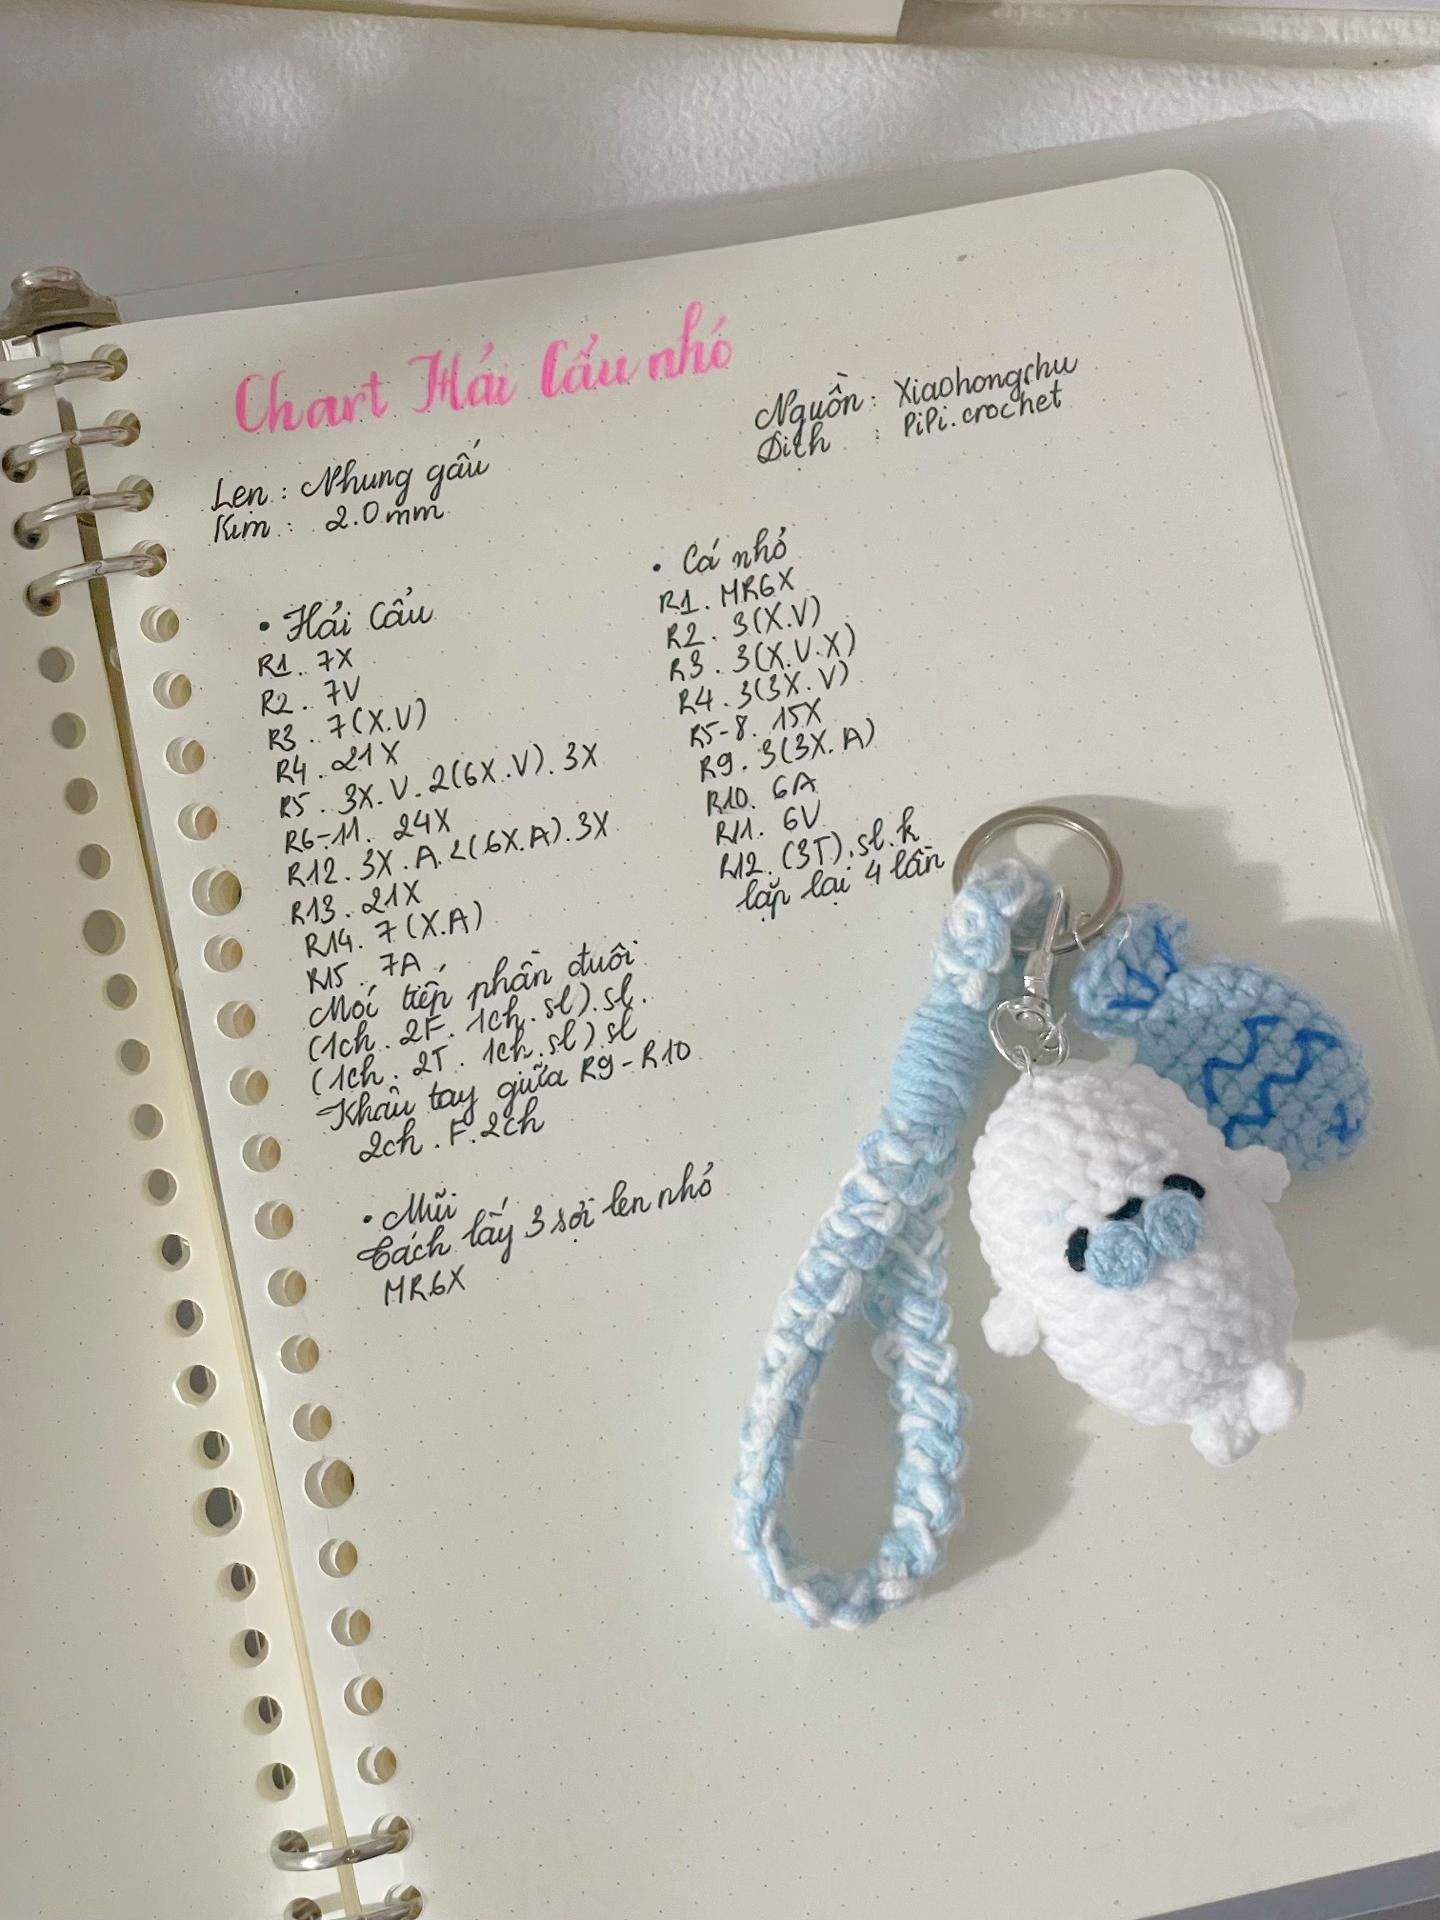 Chart Hải Cẩu nhỏ
Nguồn : Xiaohongshu
Dịch : PiPi.crochet
Len : Nhung gấu
Kim : 2.0 mm
• Hải Cẩu
R1. 7X
R2. 7V
R3. 7(X.V)
R4. 21X
R5. 3X.V.2(6X.V).3X
R6-11. 24X
R12. 3X.A.2(6X.A).3X
R13. 21X
R14. 7(X.A)
R15. 7A
Móc tiếp phần đuôi
(1ch. 2F. 1ch. sl). sl.
(1ch. 2T. 1ch. sl) sl
Khâu tay giữa R9-R10
2ch. F. 2ch
• Mũi
Tách lấy 3 sợi len nhỏ
MR6X
• Cá nhỏ
R1. MR6X
R2. 3(X.V)
R3. 3(X.V.X)
R4. 3(3X.V)
R5-8. 15X
R9. 3(3X.A)
R10. 6A
R11. 6V
R12. (3T).sl.k
lặp lại 4 lần